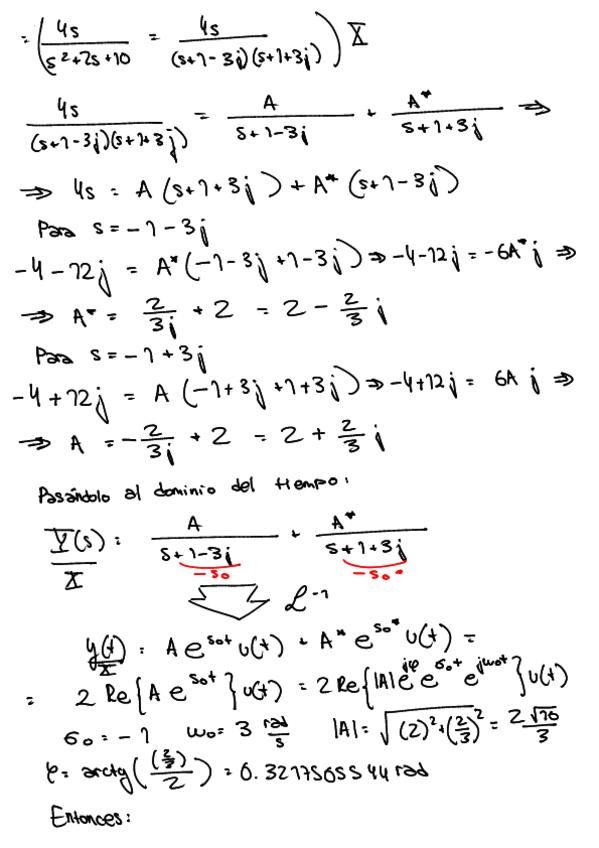 = ( 4s / (s²+2s+10) = 4s / ((s+1-3j)(s+1+3j)) ) X
4s / ((s+1-3j)(s+1+3j)) = A / (s+1-3j) + A* / (s+1+3j) ⇒
⇒ 4s = A (s+1+3j) + A* (s+1-3j)
Para s = -1-3j
-4-12j = A* (-1-3j+1-3j) ⇒ -4-12j = -6A* j ⇒
⇒ A* = 2/3j + 2 = 2 - 2/3 j
Para s = -1+3j
-4+12j = A (-1+3j+1+3j) ⇒ -4+12j = 6A j ⇒
⇒ A = -2/3j + 2 = 2 + 2/3 j
Pasándolo al dominio del tiempo:
Y(s)/X = A / (s+1-3j) + A* / (s+1+3j)
-s₀ -s₀*
ℒ⁻¹
y(t)/X = A e^(s₀t) u(t) + A* e^(s₀*) u(t) =
= 2 Re{A e^(s₀t)} u(t) = 2 Re{|A| e^(jφ) e^(σ₀t) e^(jω₀t)} u(t)
σ₀ = -1 ω₀ = 3 rad/s |A| = √((2)²+(2/3)²) = 2√10/3
φ = arctg((2/3)/2) = 0.3217505544 rad
Entonces: